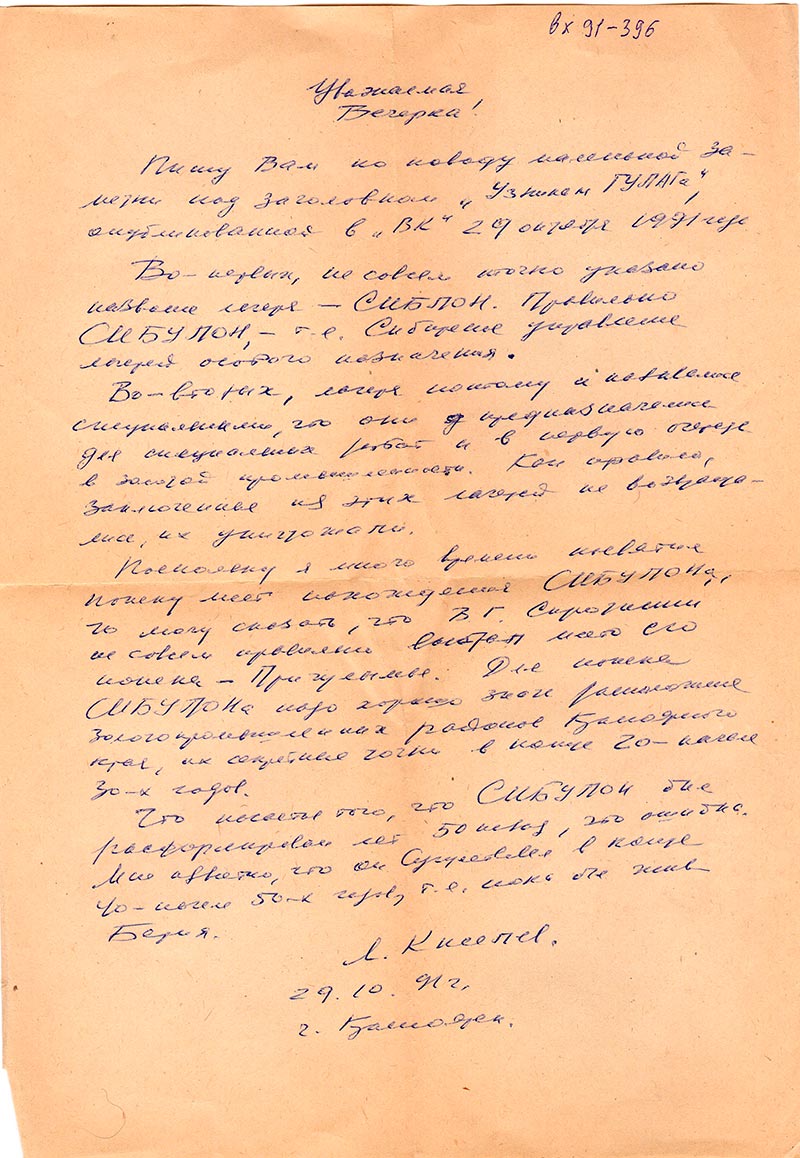 вх 91-396
Уважаемая
Вечерка!
Пишу Вам по поводу маленькой за-
метки под заголовком „Узникам ГУЛАГа“,
опубликованной в „ВК“ 29 октября 1991 года
Во-первых, не совсем точно указано
название лагеря — СИБЛОН. Правильно
СИБУЛОН, — т.е. Сибирское управление
лагерей особого назначения.
Во-вторых, лагеря поэтому и назывались
специальными, что они предназначались
для специальных работ и в первую очередь
в золотой промышленности. Как правило,
заключенные из этих лагерей не возвраща-
лись, их уничтожали.
Поскольку я много времени посвятил
поиску мест нахождения СИБУЛОНа,
то могу сказать, что В.Г. Сиротинин
не совсем правильно выбрал место его
поиска — Причулымье. Для поиска
СИБУЛОНа надо хорошо знать расположение
золотопромышленных районов Красноярского
края, их секретные точки в конце 20-начале
30-х годов.
Что касается того, что СИБУЛОН был
расформирован лет 50 назад, это ошибка.
Мне известно, что он существовал в конце
40-начале 50-х годов, т.е. пока был жив
Берия.
Л. Киселев.
29.10.91г.
г. Красноярск.